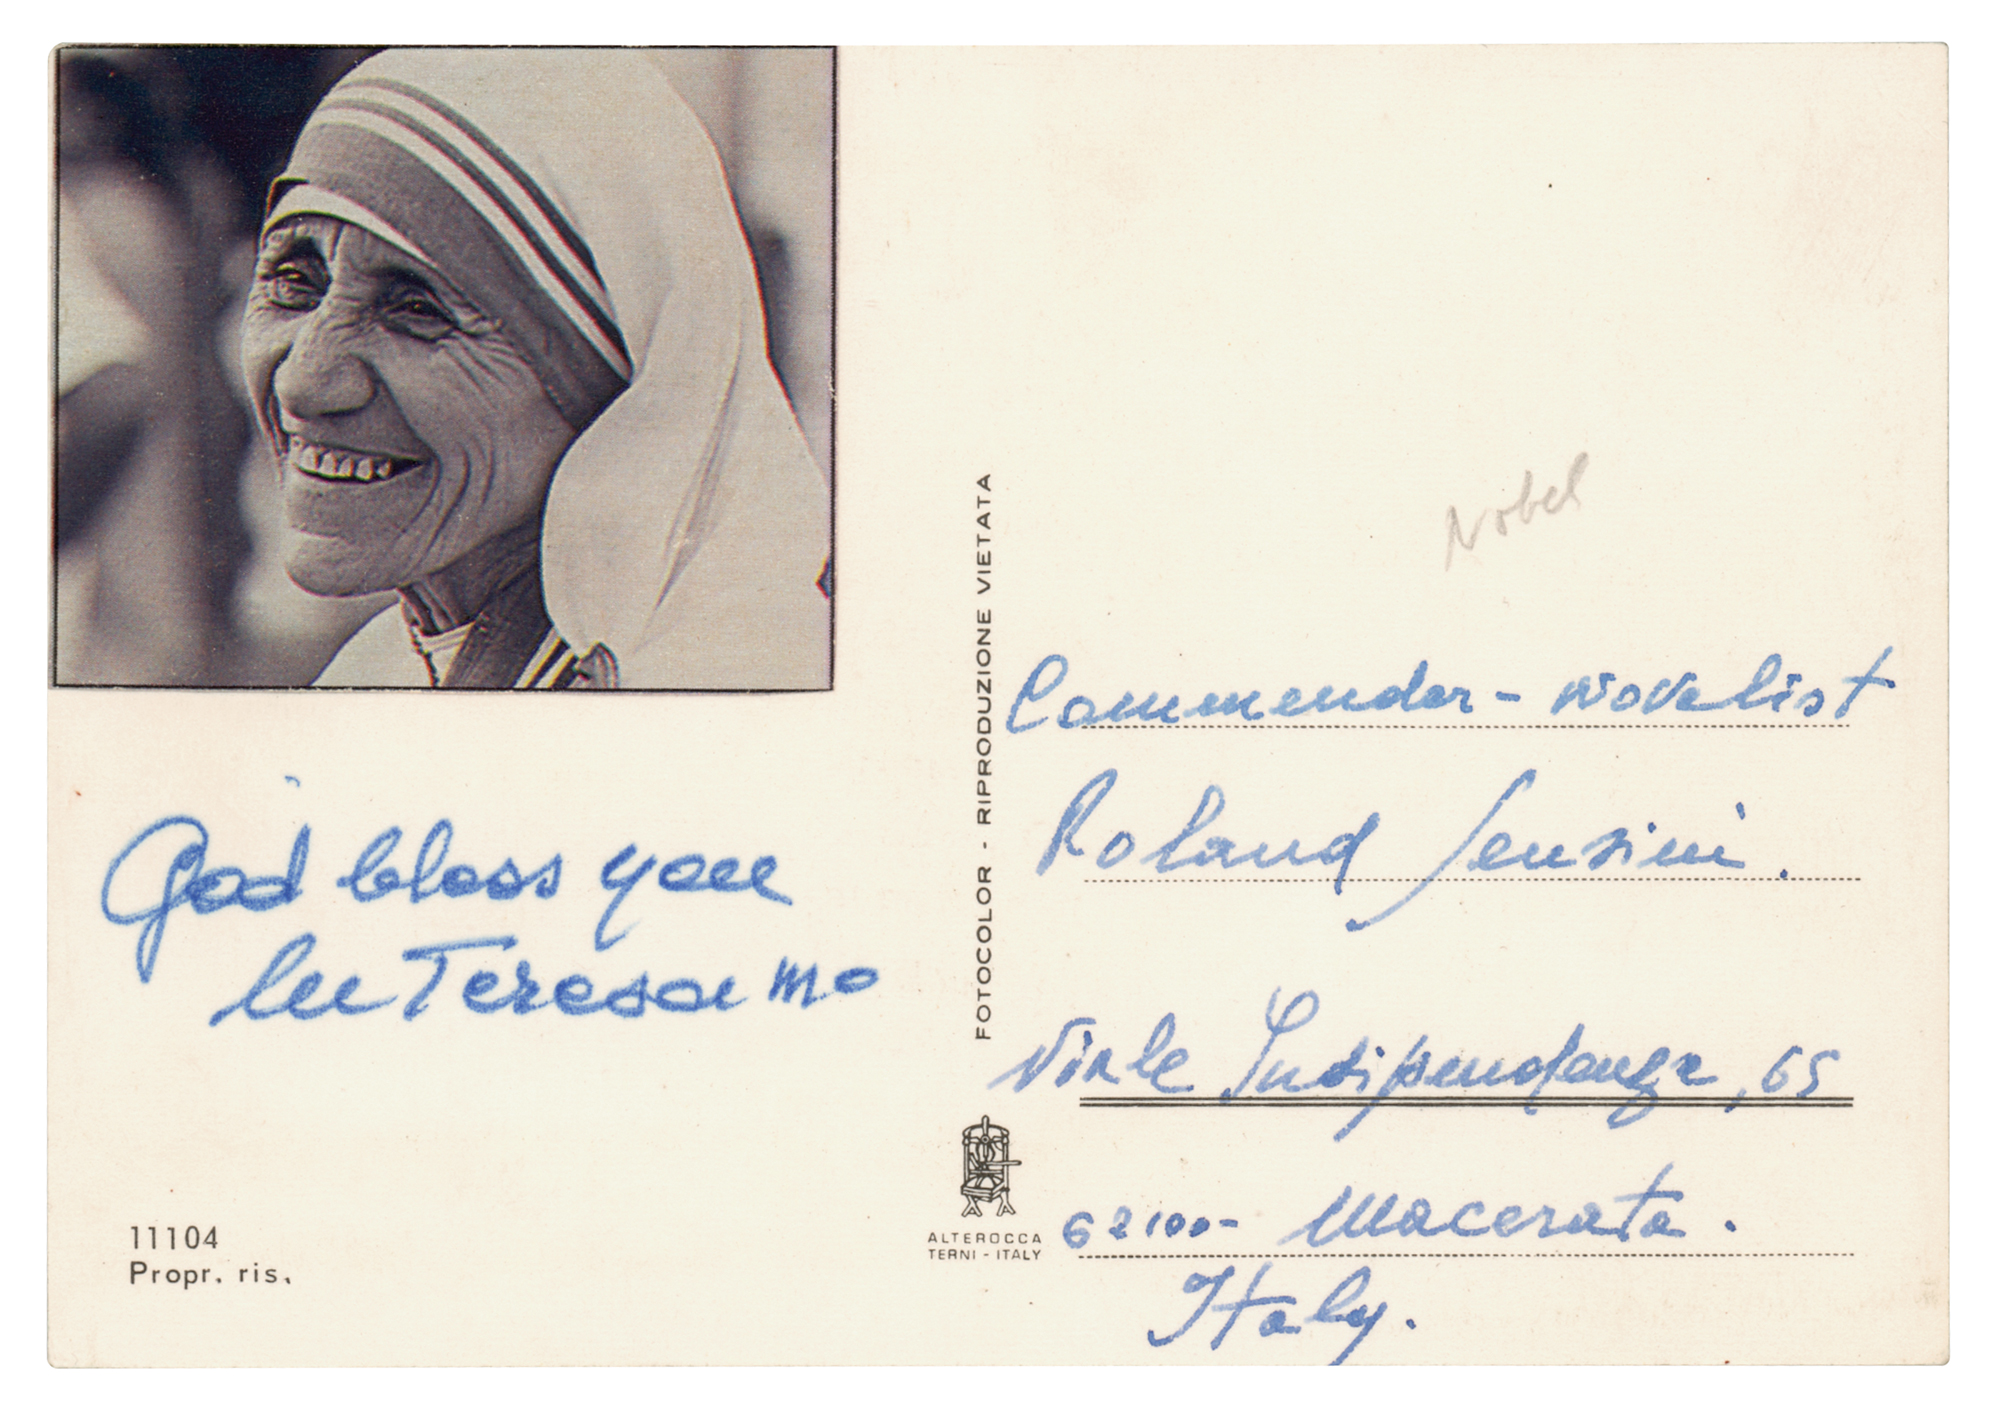 God bless you
lu Teresa mc
11104
Propr. ris.
FOTOCOLOR - RIPRODUZIONE VIETATA
ALTEROCCA
TERNI - ITALY
Nobel
Commender - Novelist
Roland Sensini.
Viale Indipendenza, 65
62100- Macerata.
Italy.